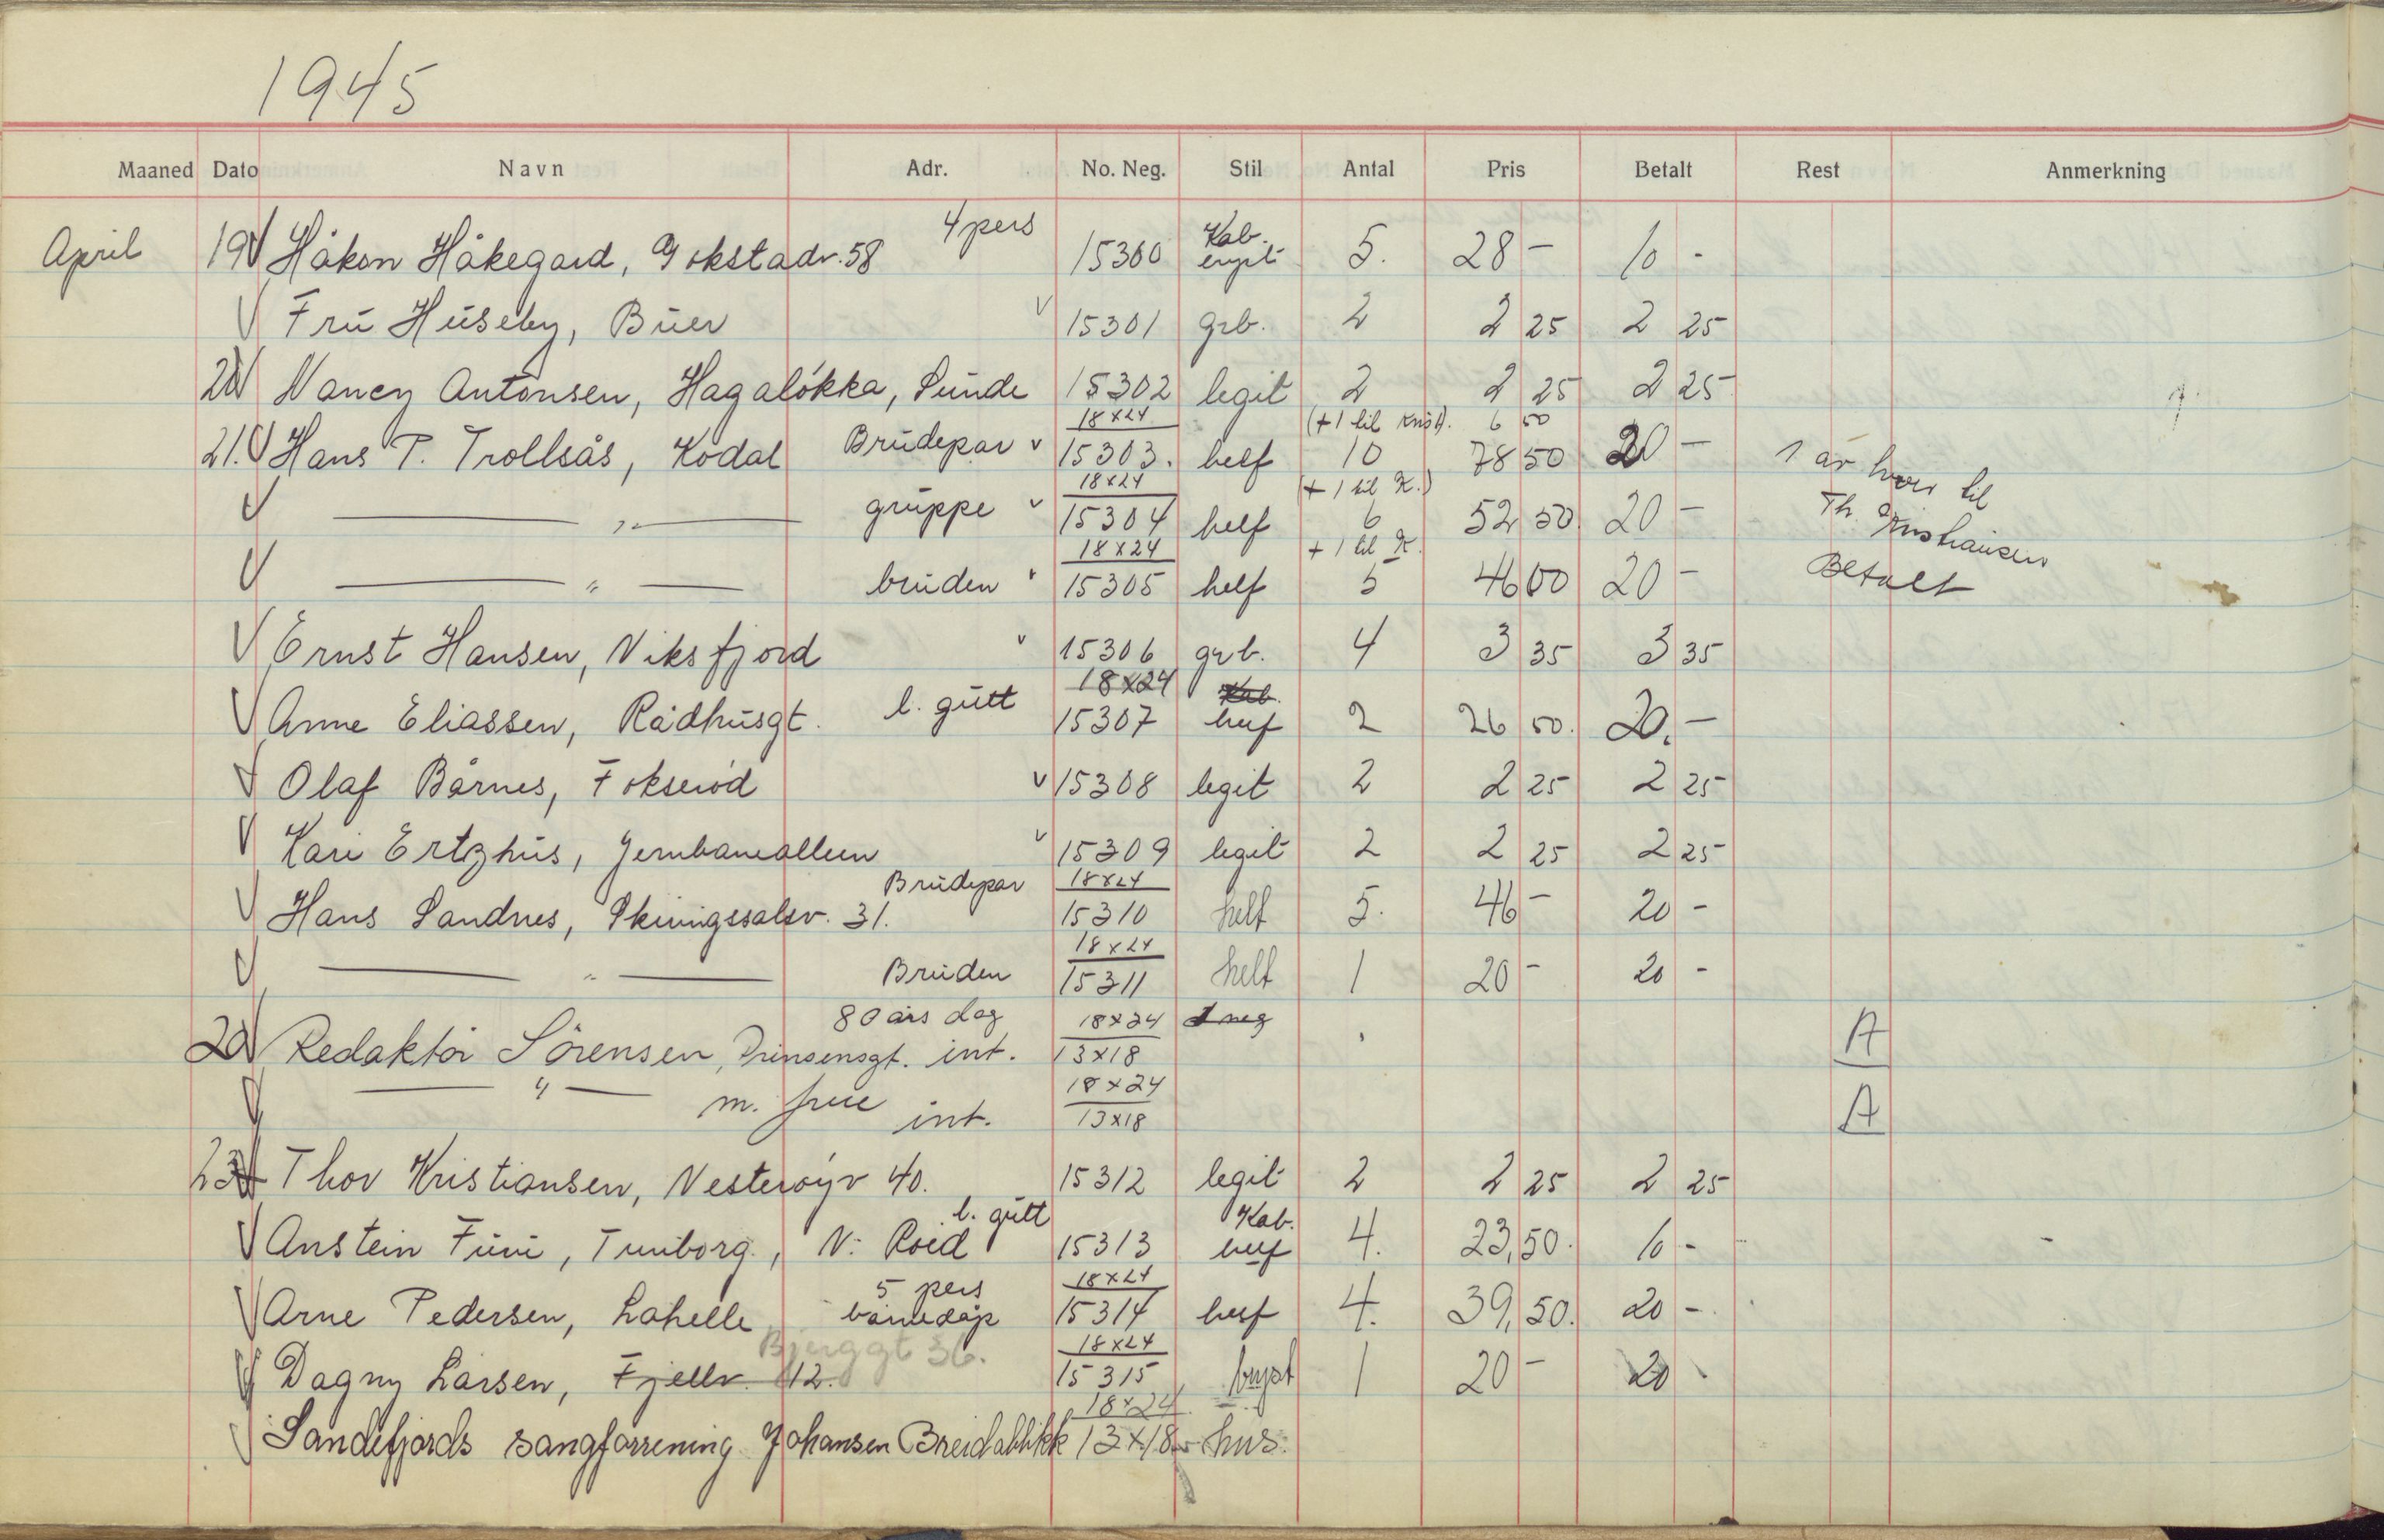 1945
Maaned Dato Navn Adr. No. Neg. Stil Antal Pris Betalt Rest Anmerkning
4 pers Kab.
April 19 Håkon Håkegard, Gokstadv. 58 15300 5. 28 - 10 -
Frū Hūseby, Būer 15301 grb. 2 2 25 2 25
20 Nancy Antonsen, Hagaløkka, Sūnde 15302 legit 2 2 25 2 25
18x24 (+1 til Kūst). 6 50
21. Hans P. Trollsås, Kodal Brūdepar 15303. helf 10 78 50 20 - 1 av hver til
18x24 (+ 1 til K.)
— " — grūppe 15304 helf 6 52 50 20 - Th.
18x24 + 1 til K.
— " — brūden 15305 helf 5 46 00 20 - Betalt
Ernst Hansen, Viksfjord 15306 grb. 4 3 35 3 35
18x24 Kab.
Anne Eliassen, Rådhūsgt. l. gūtt 15307 helf 2 26 50. 20. -
Olaf Bårnes, Fokserød 15308 legit 2 2 25 2 25
Kari Ertzhūs, Jernbanealleen 15309 legit 2 2 25 2 25
Brūdepar 18x24
Hans Sandnes, Skiringssalsv. 31. 15310 helf 5. 46 - 20 -
18x24
— " — Brūden 15311 helf 1 20 - 20 -
80 års dag 18x24 1 neg
20 Redaktør Sörensen, Prinsensgt. int. 13x18 A
— " — m. frue int. 18x24
13x18 A
23 Thor Kristiansen, Vesterøyv 40. 15312 legit 2 2 25 2 25
l. gūtt Kab.
Anstein Fūni, Tuniborg, N: 15313 helf 4. 23,50. 10 -
5 pers 18x24
Arne Pedersen, Lahelle barnedåp 15314 helf 4. 39,50. 20 -
Bjerggt 36. 18x24
Dagny Larsen, Fjellv. 12. 15315 bryst 1 20 - 20
18x24
Sandefjords sangforening Johansen Breidablikk 13x18 hus.